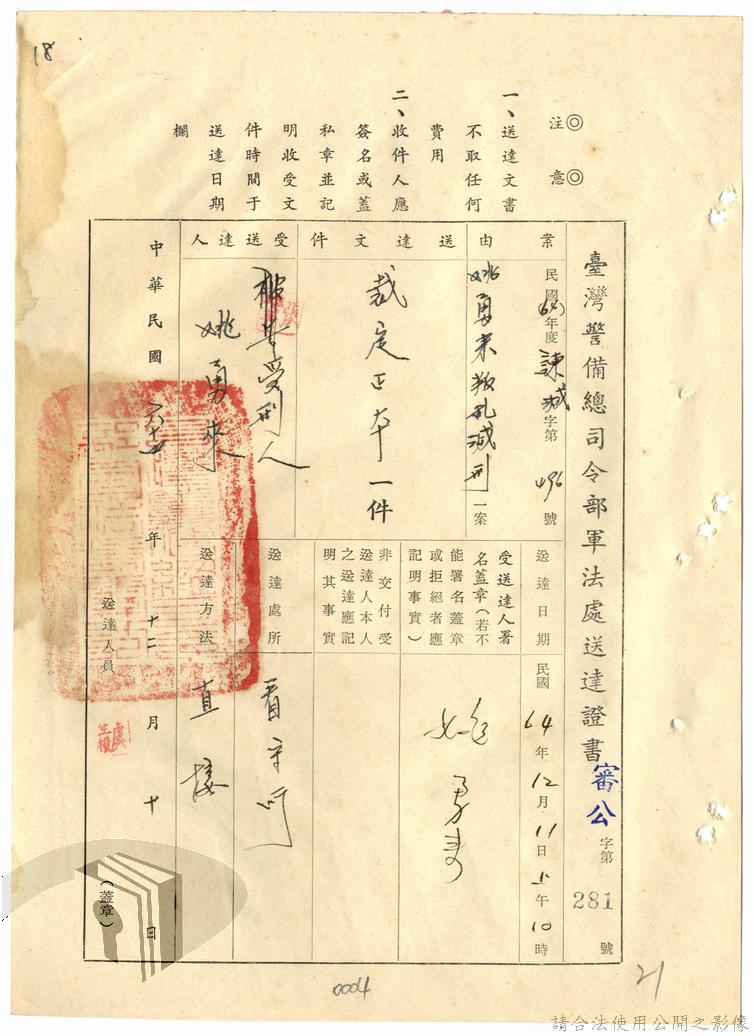 18
◎注意◎
一、送達文書
不取任何
費用
二、收件人應
簽名或蓋
私章並記
明收受文
件時間于
送達日期
欄
臺灣警備總司令部軍法處送達證書
審公字第281號
案由
民國64年度諫減字第496號
姚勇來叛亂減刑一案
送達文件
裁定正本一件
受送達人
被告受刑人
姚勇來
送達日期
民國64年12月11日上午10時
受送達人署
名蓋章(若不
能署名蓋章
或拒絕者應
記明事實)
姚勇來
非交付受
送達人本人
之送達應記
明其事實
送達處所
看守所
送達方法
直接
中華民國六十四年十二月十日
送達人員
(蓋章)
0004
21
請合法使用公開之影像